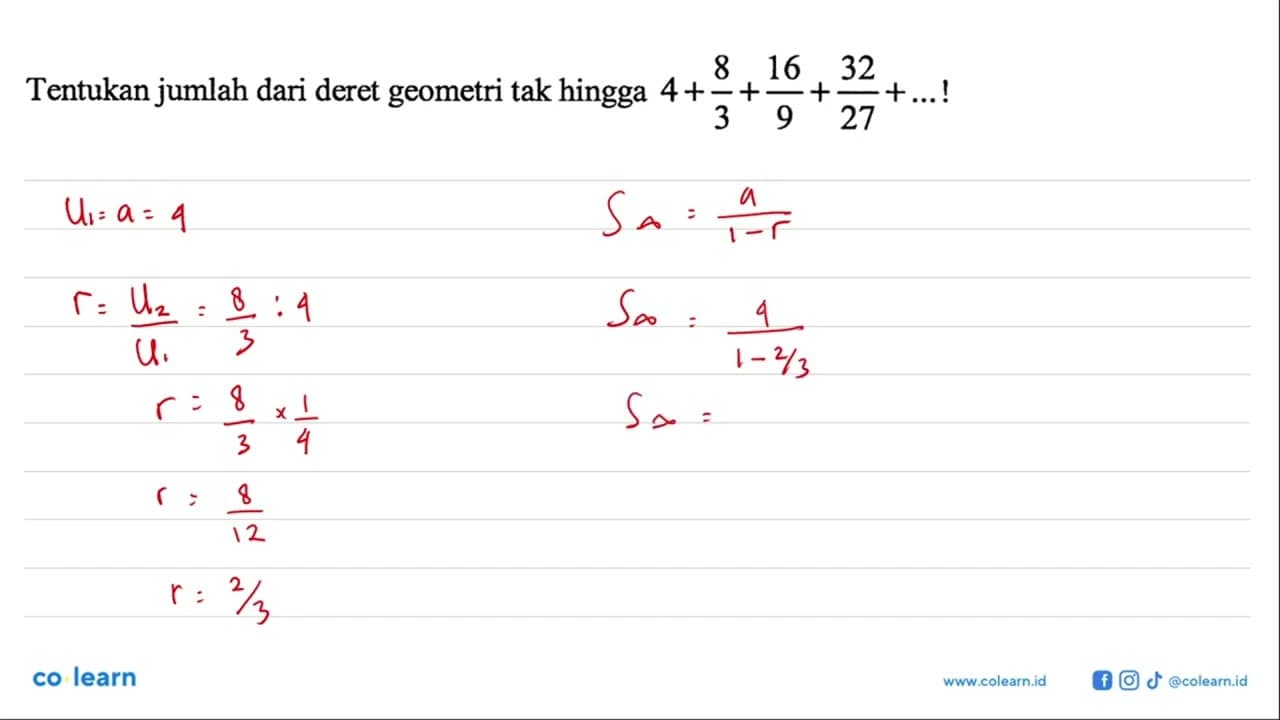 Tentukan jumlah dari deret geometri tak hingga 4 + 8/3 + 16/9 + 32/27 + ... !
U₁ = a = 4
r = U₂/U₁ = 8/3 : 4
r = 8/3 × 1/4
r = 8/12
r = 2/3
S∞ = a/(1 - r)
S∞ = 4/(1 - 2/3)
S∞ =
co learn
www.colearn.id
@colearn.id